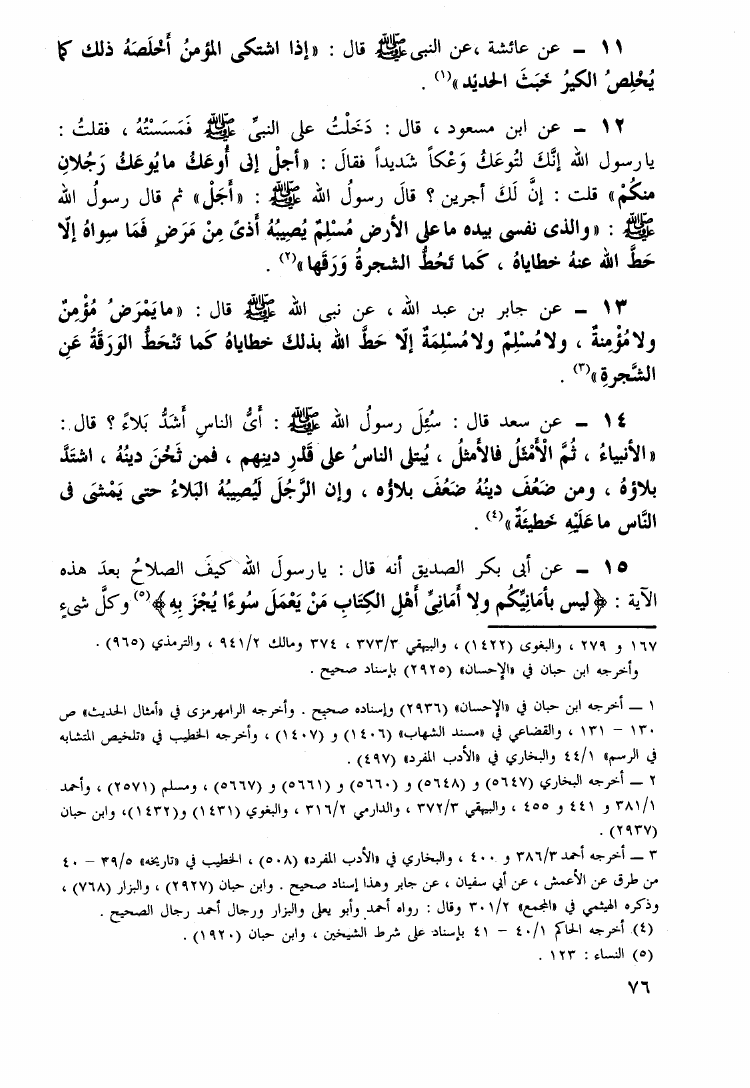 ١١ ــ عن عائشة ،عن النبى ﷺ قال : «إذا اشتكى المؤمنُ أَخْلَصَهُ ذلك كما
يُخْلِصُ الكيرُ خَبَثَ الحديد»(١) .
١٢ ــ عن ابن مسعود ، قال : دَخَلْتُ على النبىِّ ﷺ فَمَسَسْتُهُ ، فقلتُ :
يارسول الله إنَّكَ لتُوعَكُ وَعْكاً شديداً فقالَ : «أجلْ إنى أُوعَكُ مايُوعَكُ رَجُلانِ
منكُمْ» قلت : إنَّ لَكَ أجرين ؟ قالَ رسولُ الله ﷺ : «أَجَلْ» ثم قال رسولُ الله
ﷺ : «والذى نفسى بيده ماعلى الأرض مُسْلِمٌ يُصِيبُهُ أذىً مِنْ مَرَضٍ فَمَا سِواهُ إلّا
حَطَّ الله عنهُ خطاياهُ ، كَما تَحُطُّ الشجرةُ وَرَقَها»(٢) .
١٣ ــ عن جابر بن عبد الله ، عن نبى الله ﷺ قال : «مايَمْرَضُ مُؤْمِنٌ
ولامُؤْمِنةٌ ، ولامُسْلِمٌ ولامُسْلِمَةٌ إلّا حَطَّ الله بذلكَ خطاياهُ كَما تَنْحَطُّ الوَرَقَةُ عَنِ
الشَّجرةِ»(٣) .
١٤ ــ عن سعد قال : سُئِلَ رسولُ الله ﷺ : أَىُّ الناسِ أشَدُّ بَلاءً ؟ قال :
«الأنبياءُ ، ثُمَّ الْأَمْثَلُ فالأمثلُ ، يُبتلى الناسُ على قَدْرِ دينِهم ، فمن ثَخُنَ دينُهُ ، اشتَدَّ
بلاؤهُ ، ومن ضَعُفَ دينُهُ ضَعُفَ بلاؤُه ، وإن الرَّجُلَ لَيُصِيبُهُ البَلاءُ حتى يَمْشى فى
النَّاس ما عَلَيْهِ خَطيئَةٌ»(٤) .
١٥ ــ عن أبى بكر الصديق أنه قال : يارسولَ الله كيفَ الصلاحُ بعدَ هذه
الآية : ﴿ليس بأمَانِيِّكُم ولا أَمَانِىِّ أَهْلِ الكِتَابِ مَنْ يَعْمَلْ سُوءًا يُجْزَ بِهِ﴾(٥) وكلَّ شىءٍ
١٦٧ و ٢٧٩ ، والبغوى (١٤٢٢) ، والبيهقي ٣٧٣/٣ ، ٣٧٤ ومالك ٩٤١/٢ ، والترمذي (٩٦٥) .
وأخرجه ابن حبان في «الإحسان» (٢٩٢٥) بإسناد صحيح .
١ ــ أخرجه ابن حبان في «الإحسان» (٢٩٣٦) وإسناده صحيح . وأخرجه الرامهرمزى في «أمثال الحديث» ص
١٣٠ – ١٣١ ، والقضاعي في «مسند الشهاب» (١٤٠٦) و (١٤٠٧) ، وأخرجه الخطيب في «تلخيص المتشابه
في الرسم» ٤٤/١ والبخاري في «الأدب المفرد» (٤٩٧) .
٢ ــ أخرجه البخاري (٥٦٤٧) و (٥٦٤٨) و (٥٦٦٠) و (٥٦٦١) و (٥٦٦٧) ، ومسلم (٢٥٧١) ، وأحمد
٣٨١/١ و ٤٤١ و ٤٥٥ ، والبيهقي ٣٧٢/٣ ، والدارمي ٣١٦/٢ ، والبغوي (١٤٣١) و(١٤٣٢)، وابن حبان
(٢٩٣٧) .
٣ ــ أخرجه أحمد ٣٨٦/٣ و ٤٠٠ ، والبخاري في «الأدب المفرد» (٥٠٨) ، الخطيب في «تاريخه» ٣٩/٥ – ٤٠
من طرق عن الأعمش ، عن أبي سفيان ، عن جابر وهذا إسناد صحيح . وابن حبان (٢٩٢٧) ، والبزار (٧٦٨) ،
وذكره الهيثمي في «المجمع» ٣٠١/٢ وقال : رواه أحمد وأبو يعلى والبزار ورجال أحمد رجال الصحيح .
(٤) أخرجه الحاكم ٤٠/١ – ٤١ بإسناد على شرط الشيخين ، وابن حبان (١٩٢٠) .
(٥) النساء : ١٢٣ .
٧٦